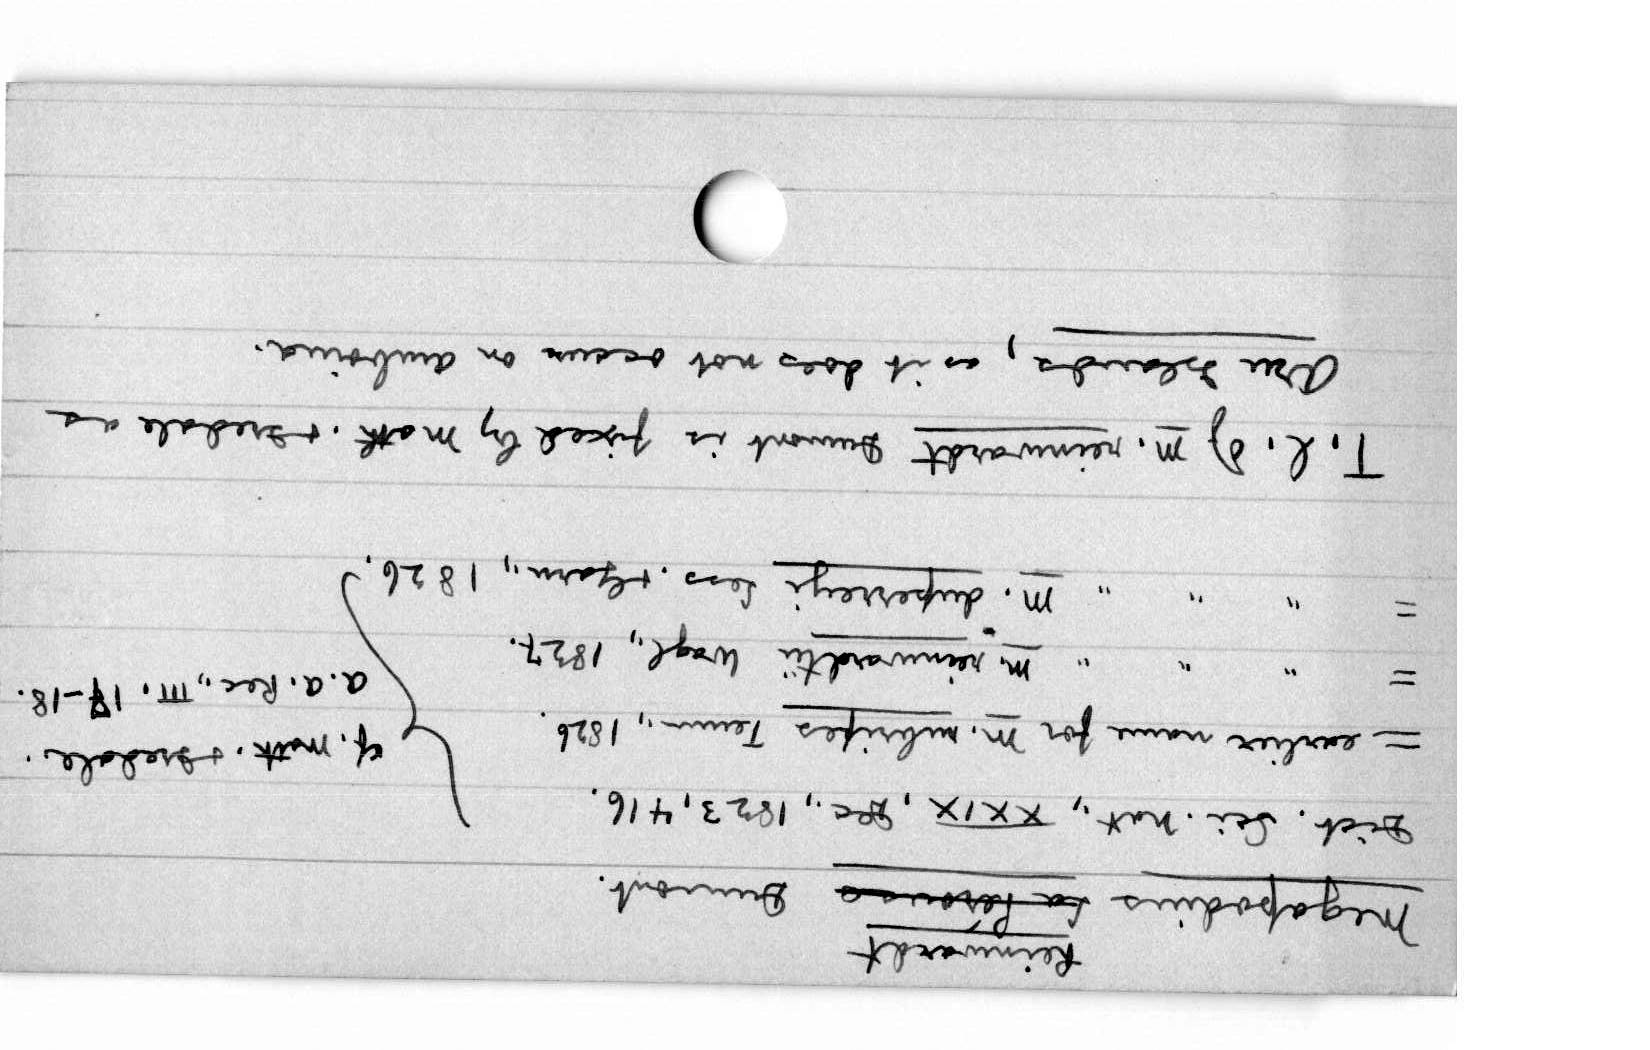 Reinwardt
Megapodius La Pérouse Dumont.
Dict. Sci. Nat., XXIX, Dec., 1823, 416.
= earlier name for M. rubripes Temm., 1826.
= " " " M. reinwardtii Wagl., 1827.
= " " " M. duperreyi Less. + Garn., 1826.
cf. Math. + Iredale.
A. A. Rec., III. 17-18.
T. L. of M. reinwardt Dumont is fixed by Math. + Iredale as
Aru Islands, as it does not occur on Amboina.